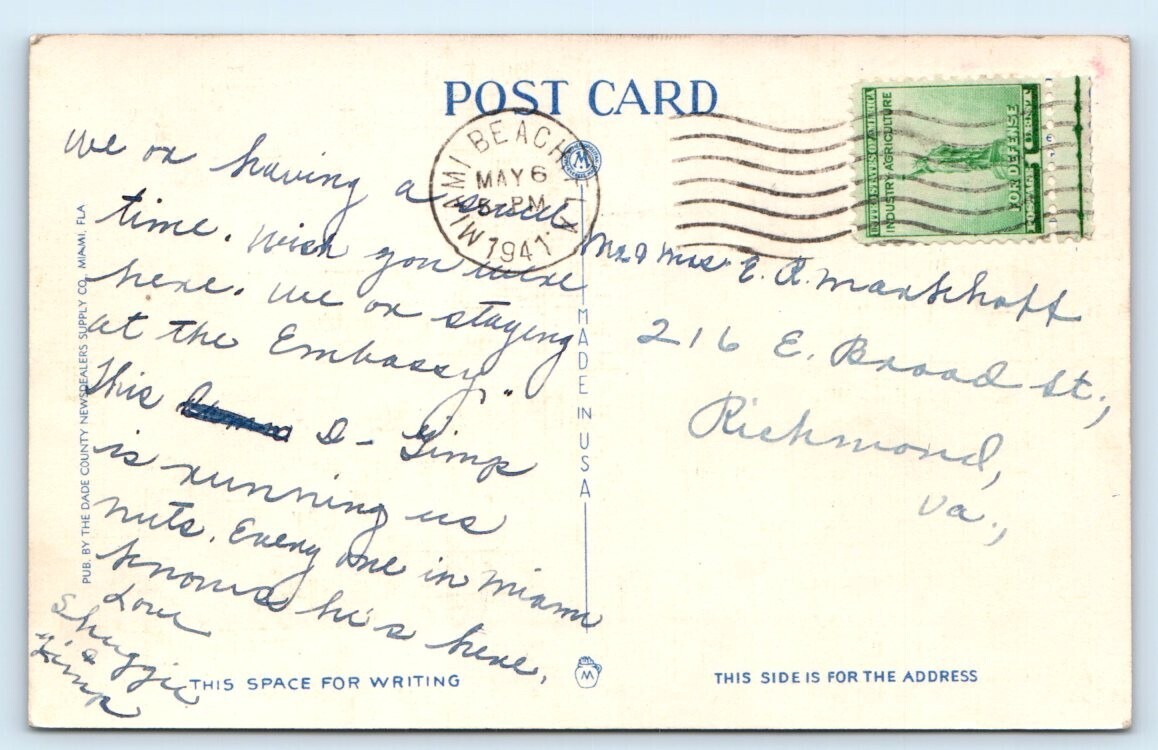 POST CARD
MIAMI BEACH, FLA.
MAY 6
PM
1941
UNITED STATES OF AMERICA
INDUSTRY AGRICULTURE
FOR DEFENSE
POSTAGE 1 CENT
We ar having a swell
time. Wish you were
here. We ar staying
at the Embassy."
This D- Gimp
is running us
nuts. Every one in Miami
knows he's here.
Love
Shuggie
&
Gimp
Mr. & Mrs. E. R. Markhoff
216 E. Broad St.,
Richmond,
Va.,
PUB. BY THE DADE COUNTY NEWSDEALERS SUPPLY CO., MIAMI, FLA
MADE IN USA
THIS SPACE FOR WRITING
M
THIS SIDE IS FOR THE ADDRESS